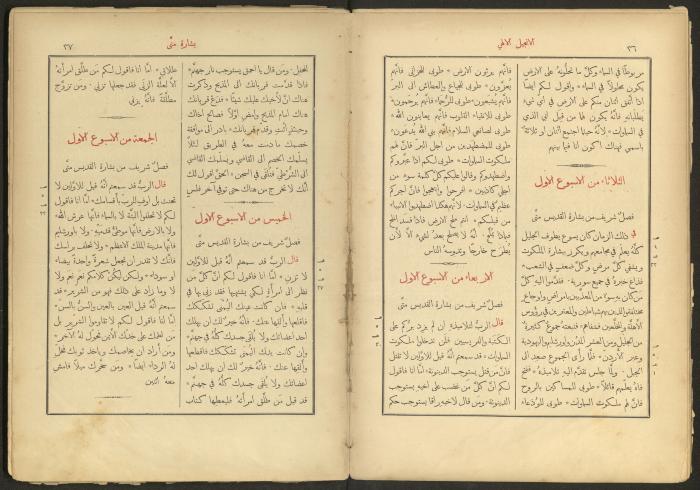 ٣٦
الانجيل الالهي
مربوطًا في السماء وكلّ ما تحلّونهُ على الارض
يكون محلولًا في السماء ۞ واقول لكم ايضًا
اذا اتفق اثنان منكم على الارض في اي شيء
يطلبانهِ فانهُ يكون لهما من قبل ابي الذي
في السماوات ۞ لانهُ حيثما اجتمع اثنان او ثلاثة
باسمي فهناك اكون انا فيما بينهم
الثلاثاء من الاسبوع الاول
فصلٌ شريف من بشارة القديس متّى
في ذلك الزمان كان يسوع يطوف الجليل
كلّهُ يعلّم في مجامعهم ويكرز ببشارة الملكوت
ويشفي كلّ مرض وكلّ ضعف في الشعب
فذاع خبرهُ في جميع سورية فقدّموا اليهِ كلّ
من كان بهِ سوء من المعذّبين بامراض واوجاع
مختلفة والذين بهم شياطين والمعترين في رؤوس
الاهلّة والمخلّعين فشفاهم فتبعتهُ جموع كثيرة
من الجليل ومن العشر المدن واورشليم واليهودية
وعبر الاردن فلمّا رأى الجموع صعد الى
الجبل ولما جلس تقدّم اليهِ تلاميذهُ ففتح
فاهُ يعلّمهم قائلًا طوبى للمساكين بالروح
فانّ لهم ملكوت السماوات طوبى للودعاء
فانّهم يرثون الارض طوبى للحزانى فانّهم
يُعزّون طوبى للجياع والعطاش الى البرّ
فانّهم يُشبعون طوبى للرحماء فانّهم يُرحمون
طوبى للانقياء القلوب فانّهم يعاينون الله
طوبى لصانعي السلام فانّهم بني الله يُدعون
طوبى للمضطهدين من اجل البرّ فانّ لهم
ملكوت السماوات طوبى لكم اذا عيّروكم
واضطهدوكم وقالوا عليكم كلّ كلمة سوء من
اجلي كاذبين افرحوا وابتهجوا فانّ اجركم
عظيم في السماوات لانهم هكذا اضطهدوا الانبياء
من قبلكم انتم ملح الارض فاذا فسد الملح
فبماذا يُملَّح انهُ لا يصلح بعد لشيء الّا لأن
يُطرَح خارجًا وتدوسهُ الناس
الاربعاء من الاسبوع الاول
فصلٌ شريف من بشارة القديس متّى
قال الربّ لتلاميذهِ ان لم يزد برّكم على
الكتبة والفريسيين فلن تدخلوا ملكوت
السماوات قد سمعتم انهُ قيل للاوّلين لا تقتل
فانّ من قتل يستوجب الدينونة امّا انا فاقول
لكم انّ كلّ من غضب على اخيهِ يستوجب
الدينونة ومن قال لاخيهِ راقا يستوجب حكم
بشارة متّى
٣٧
المحفل ومن قال يا احمق يستوجب نار جهنّم
فاذا قدّمت قربانك الى المذبح وذكرت
هناك انّ لأخيك عليك شيئًا فدع قربانك
هناك امام المذبح وامضِ اوّلًا فصالح اخاك
وحينئذٍ ائتِ وقدّم قربانك بادر الى موافقة
خصمك ما دمت معهُ في الطريق لئلّا
يسلّمك الخصم الى القاضي ويسلّمك القاضي
الى الشرطيّ فتُلقى في السجن الحقّ اقول لك
انك لا تخرج من هناك حتى توفي آخر فلس
الخميس من الاسبوع الاول
فصلٌ شريف من بشارة القديس متّى
قال الربّ قد سمعتم انهُ قيل للاوّلين
لا تزنِ امّا انا فاقول لكم انّ كلّ من
نظر الى امرأة لكي يشتهيها فقد زنى بها في
قلبهِ فان كانت عينك اليمنى تشكّكك
فاقلعها وألقها عنك فانهُ خيرٌ لك ان يهلك
احد اعضائك ولا يُلقى جسدك كلّهُ في جهنّم
وإن كانت يدك اليمنى تشكّكك فاقطعها
وألقها عنك فانهُ خيرٌ لك ان يهلك احد
اعضائك ولا يُلقى جسدك كلّهُ في جهنّم
قد قيل من طلّق امرأتهُ فليعطها كتاب
طلاق امّا انا فاقول لكم من طلّق امرأتهُ
الّا لعلّة الزنى فقد جعلها تزني ومن تزوّج
مطلّقةً فانهُ يزني
الجمعة من الاسبوع الاول
فصلٌ شريف من بشارة القديس متّى
قال الربّ قد سمعتم انهُ قيل للاوّلين لا
تحنث بل اوفِ للربّ بأقسامك امّا انا فاقول
لكم لا تحلفوا البتّة لا بالسماء فانّها عرش الله
ولا بالارض فانّها موطئ قدميهِ ولا باورشليم
فانّها مدينة الملك الاعظم ولا تحلف برأسك
فانك لا تقدر ان تجعل شعرةً واحدة بيضاء
او سوداء ولكن ليكن كلامكم نعم نعم ولا
لا وما زاد على ذلك فهو من الشرير قد
سمعتم انهُ قيل العين بالعين والسنّ بالسنّ
امّا انا فاقول لكم لا تقاوموا الشرير بل
من لطمك على خدّك الايمن فحوّل لهُ الآخر
ومن أراد ان يخاصمك وياخذ ثوبك فخلّ
لهُ الرداء ايضًا ومن سخّرك ميلًا فامشِ
معهُ اثنين